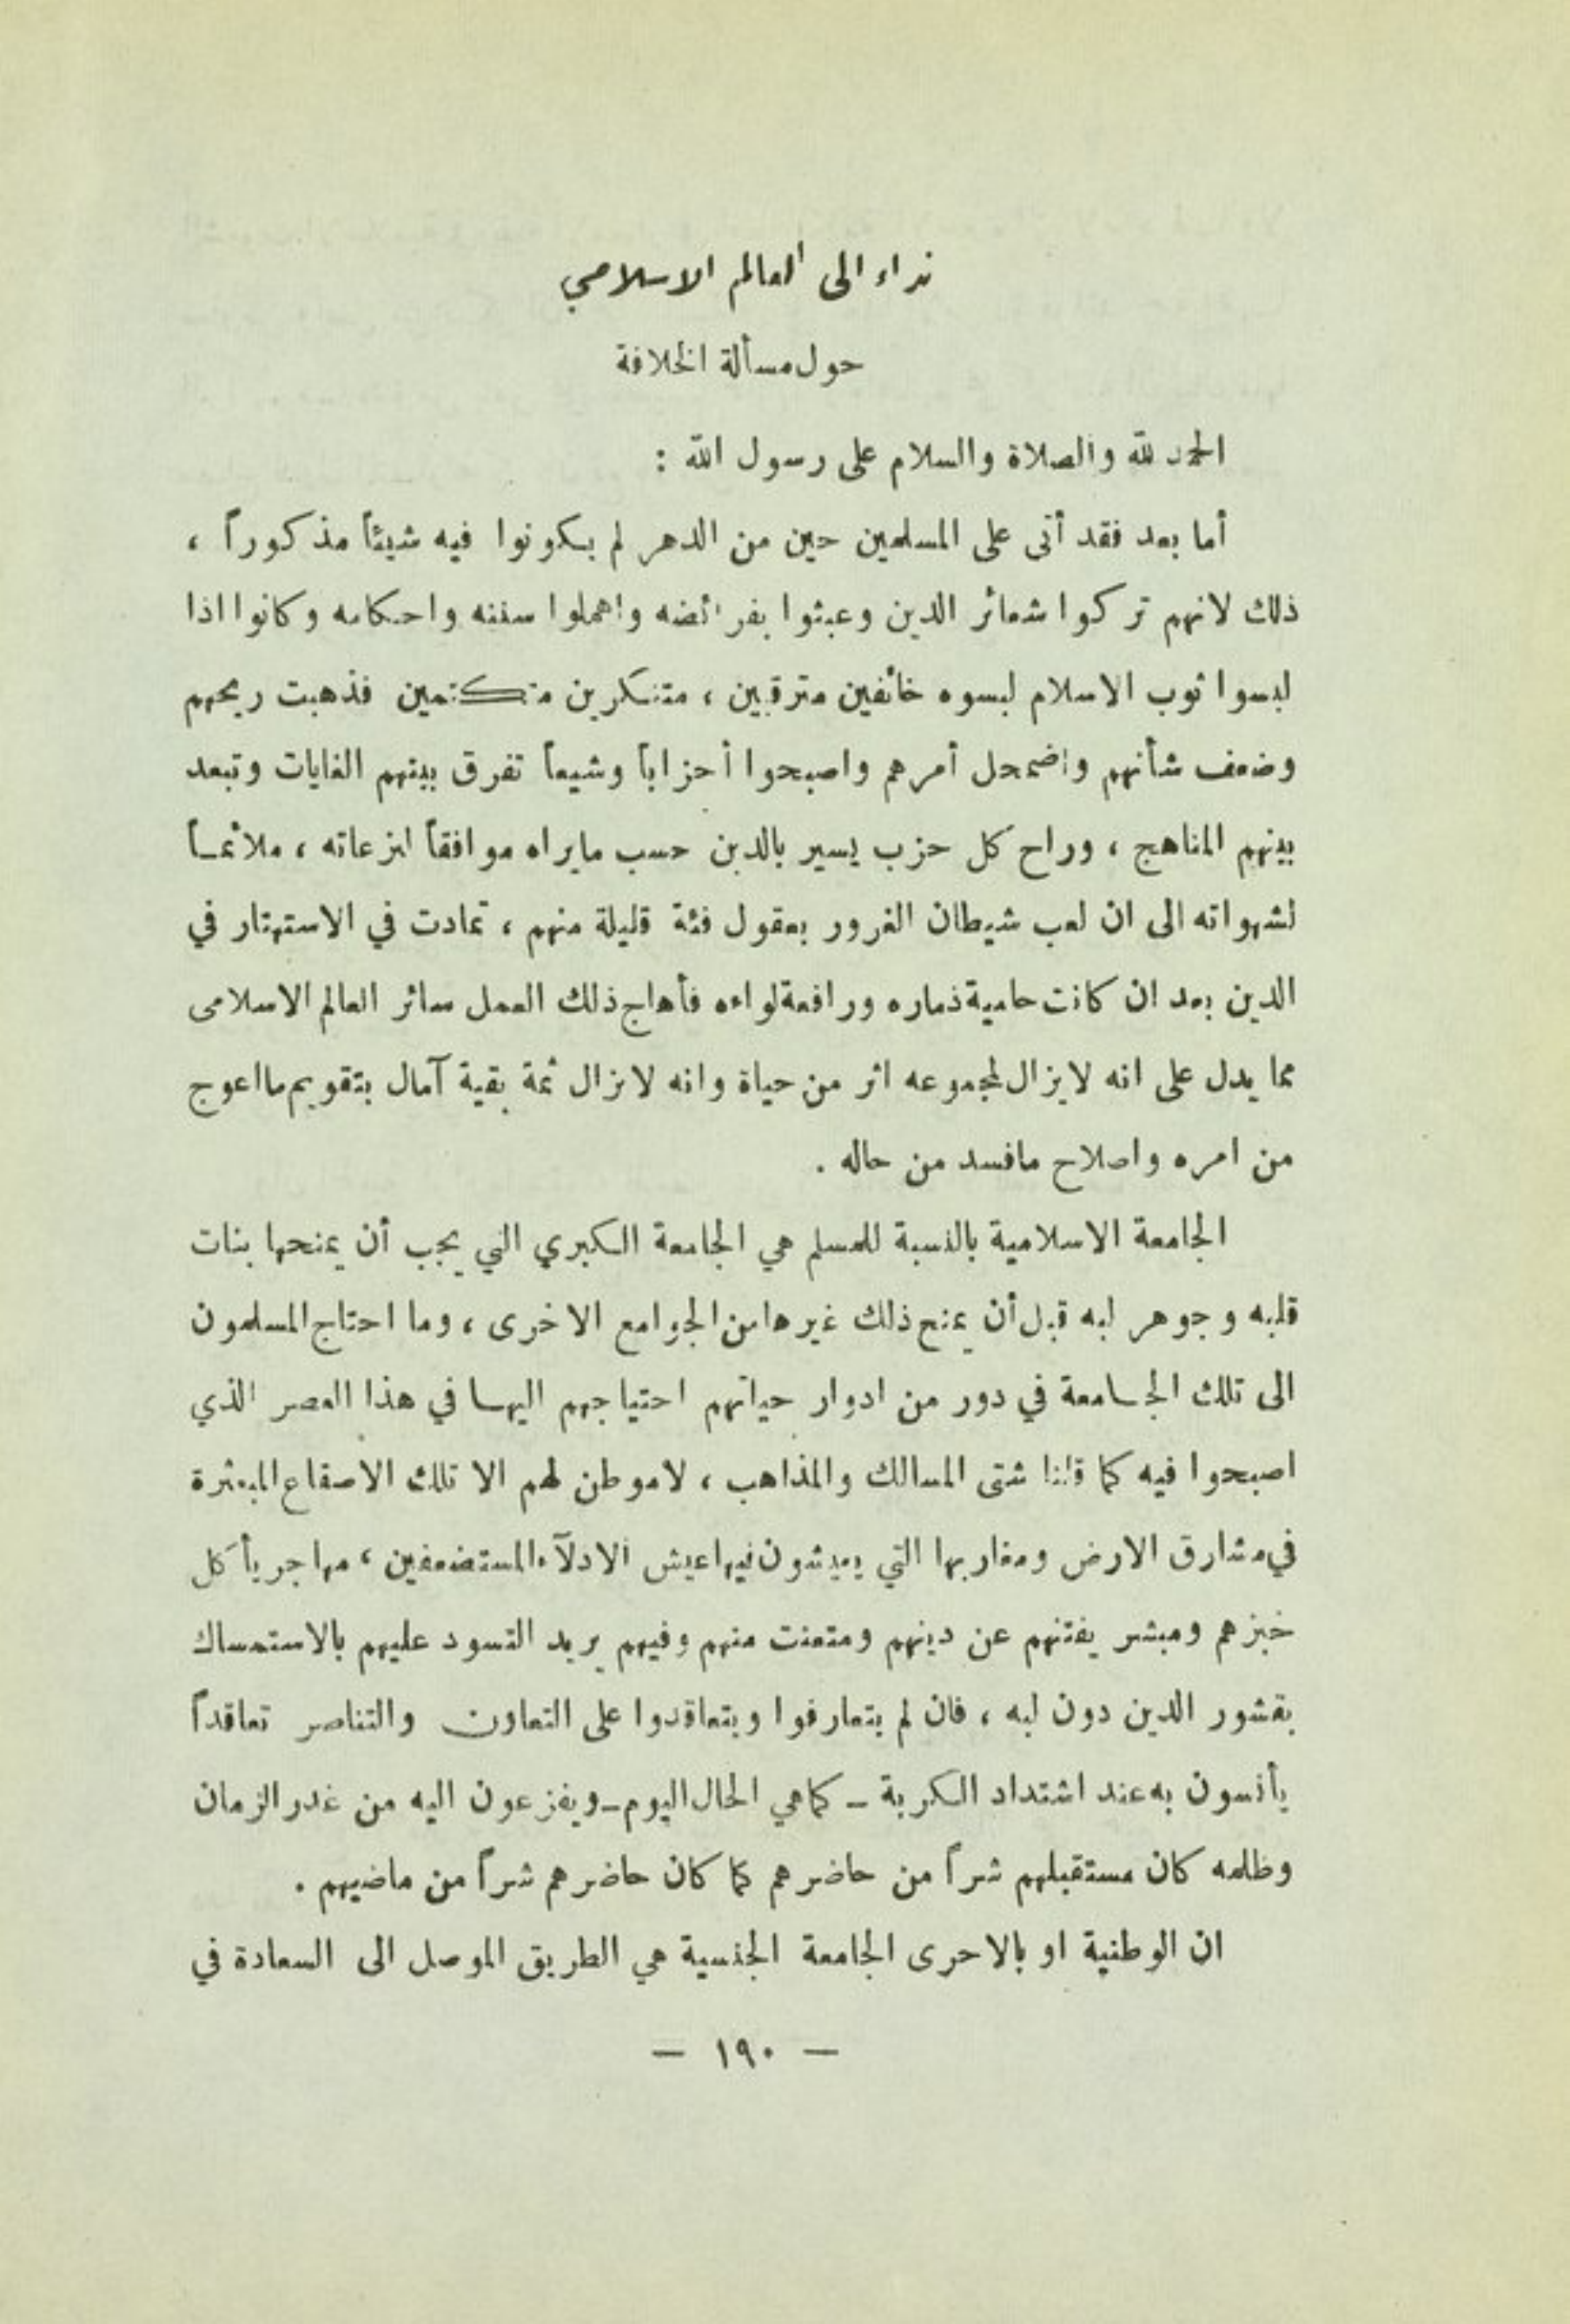 نداء الى العالم الاسلامي
حول مسألة الخلافة
الحمد لله والصلاة والسلام على رسول الله :
أما بعد فقد أتى على المسلمين حين من الدهر لم يكونوا فيه شيئاً مذكوراً ،
ذلك لانهم تركوا شعائر الدين وعبثوا بفرائضه واهملوا سننه واحكامه وكانوا اذا
لبسوا ثوب الاسلام لبسوه خائفين مترقبين ، متنكرين متكتمين فذهبت ريحهم
وضعف شأنهم واضمحل أمرهم واصبحوا أحزاباً وشيعاً تفرق بينهم الغايات وتبعد
بينهم المناهج ، وراح كل حزب يسير بالدين حسب مايراه موافقاً لنزعاته ، ملائماً
لشهواته الى ان لعب شيطان الغرور بعقول فئة قليلة منهم ، تمادت في الاستهتار في
الدين بعد ان كانت حامية ذماره ورافعة لواءه فأهاج ذلك العمل سائر العالم الاسلامى
مما يدل على انه لايزال لمجموعه اثر من حياة وانه لايزال ثمة بقية آمال بتقويم مااعوج
من امره واصلاح مافسد من حاله .
الجامعة الاسلامية بالنسبة للمسلم هي الجامعة الكبري التي يجب أن يمنحها بنات
قلبه وجوهر لبه قبل أن يمنح ذلك غيرها من الجوامع الاخرى ، وما احتاج المسلمون
الى تلك الجامعة في دور من ادوار حياتهم احتياجهم اليها في هذا العصر الذي
اصبحوا فيه كما قلنا شتى المسالك والمذاهب ، لاموطن لهم الا تلك الاصقاع المبعثرة
في مشارق الارض ومغاربها التي يعيشون فيها عيش الادلآء المستضعفين ، مهاجر يأكل
خبزهم ومبشر يفتنهم عن دينهم ومتعنت منهم وفيهم يريد التسود عليهم بالاستمساك
بقشور الدين دون لبه ، فان لم يتعارفوا ويتعاقدوا على التعاون والتناصر تعاقداً
يأنسون به عند اشتداد الكربة ـ كما هي الحال اليوم ـ ويفزعون اليه من غدر الزمان
وظلمه كان مستقبلهم شراً من حاضرهم كما كان حاضرهم شراً من ماضيهم .
ان الوطنية او بالاحرى الجامعة الجنسية هي الطريق الموصل الى السعادة في
— ١٩٠ —